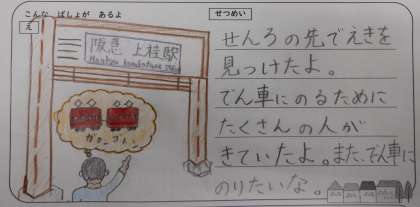 こんな ばしょが あるよ
え
せつめい
阪急 上桂駅
ガタンゴトン
せんろの先でえきを
見つけたよ。
でん車にのるために
たくさんの人が
きていたよ。また、でん車に
のりたいな。